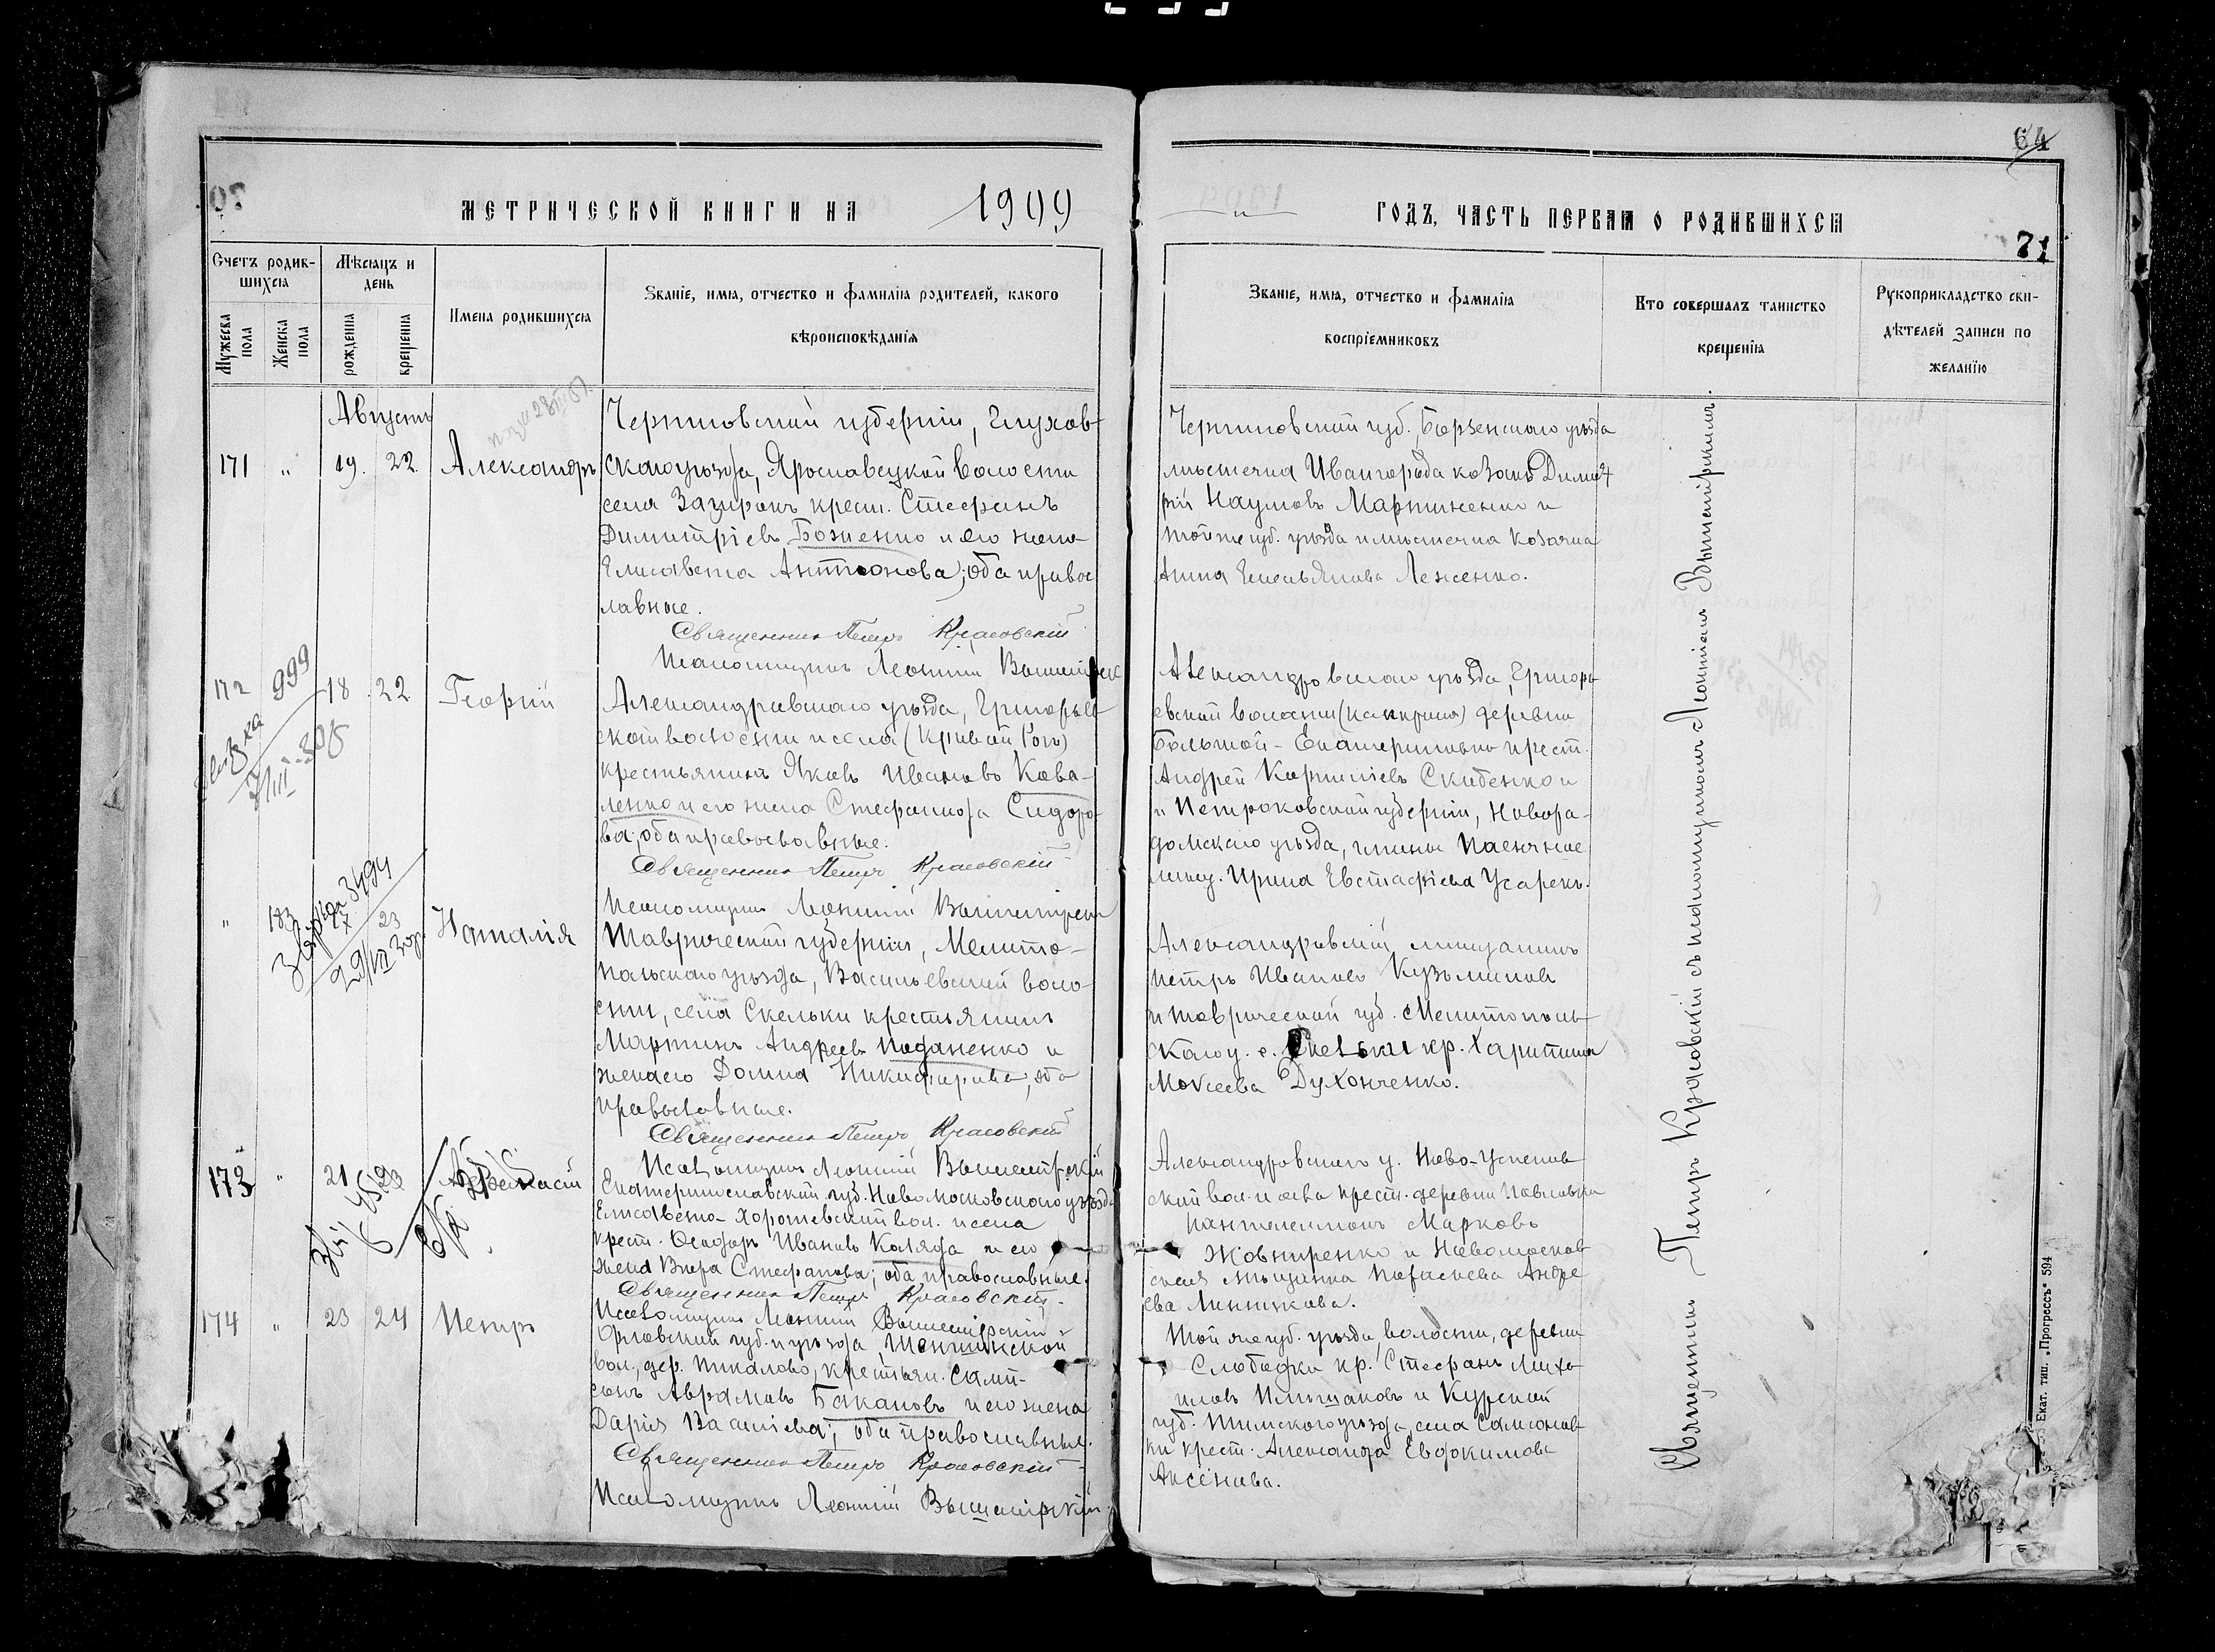 64
70
МЕТРИЧЕСКОЙ КНИГИ НА 1909
ГОДЪ, ЧАСТЬ ПЕРВАЯ О РОДИВШИХСЯ
71
Счетъ родив-
шихся
Мужеска пола
Женска пола
Мѣсяцъ и
день
рожденія
крещенія
Имена родившихся
Званіе, имя, отчество и фамилія родителей, какого
вѣроисповѣданія
Званіе, имя, отчество и фамилія
воспріемниковъ
Кто совершалъ таинство
крещенія
Рукоприкладство сви-
дѣтелей записи по
желанію
Августъ
171 " 19. 22. Александръ
Черниговской губерніи, Глухов-
скаго уѣзда, Ярославецкой волости
села Зацирокъ крест. Стефанъ
Димитріевъ Боженко и его жена
Елисавета Антонова; оба правос
лавные.
Священникъ Петръ Красовскій
Псаломщикъ Леонтій
Черниговской губ., Борзенскаго уѣзда
мѣстечка Ивангорода козакъ Димит
рій Наумовъ Мартиненко и
той же губ. уѣзда и мѣстечка козачка
Анна Емельянова Леженко.
172 999 18 22 Георгій
Александровскаго уѣзда, Григорьев
ской волости и села (Кривой Рогъ)
крестьянинъ Яковъ Ивановъ Кова-
ленко и его жена Стефанида Сидоро-
ва; оба православные.
Священникъ Петръ Красовскій
Псаломщикъ Леонтій
Александровскаго уѣзда, Григорь
евской волости (Канкрина) деревни
Большой-Екатериновки крест.
Андрей Корниліевъ Скибенко и
и Петроковской губерніи, Новора-
домскаго уѣзда, гмины
Ирина Евстафіева Усарекъ.
" 183 27 23 Наталія
3494
Таврической губерніи, Мелито-
польскаго уѣзда, Васильевской воло-
сти, села Скельки крестьянинъ
Мартинъ Андреевъ Поданенко и
жена его Домна Никифорова; оба
православные.
Священникъ Петръ Красовскій
Псаломщикъ Леонтій
Александровскій мищанинъ
Петръ Ивановъ Кузьминовъ
и Таврической губ. Мелитополь-
скаго у. с. Скельки кр. Харитина
Мокеева Духонченко.
173 " 21 23
Екатеринославской губ. Новомосковскаго уѣзда
Елисавето-Хорошевской вол. и села
крест. Феодоръ Ивановъ Коляда и его
жена Вѣра Стефанова; оба православные.
Священникъ Петръ Красовскій
Псаломщикъ Леонтій
Александровскаго у. Ново-Успенов
ской вол. и села крест. деревни Павловки
Пантелеимонъ Марковъ
Жовниренко и Новомосков
ская мѣщанка Андре
ева
174 " 23 24 Петръ
Орловской губ. и уѣзда,
вол., дер. Пикалово, крестьян. Самп-
сонъ Аврамовъ Бакановъ и его жена
Дарія Василіева; оба православные.
Священникъ Петръ Красовскій
Псаломщикъ Леонтій
Той же губ. уѣзда, волости, деревни
Слободки кр. Стефанъ Миха
иловъ и Курской
губ. Тимскаго уѣзда, села Самсонов
ки крест. Александра Евфокимова
Аксенова.
Священникъ Петръ Красовскій съ псаломщикомъ Леонтіемъ
Екат. тип. „Прогрессъ" 594